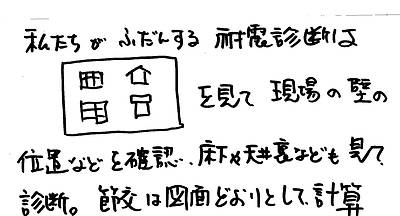 私たちがふだんする耐震診断は
を見て現場の壁の
位置などを確認、床下や天井裏なども見て
診断。節交は図面どおりとして、計算